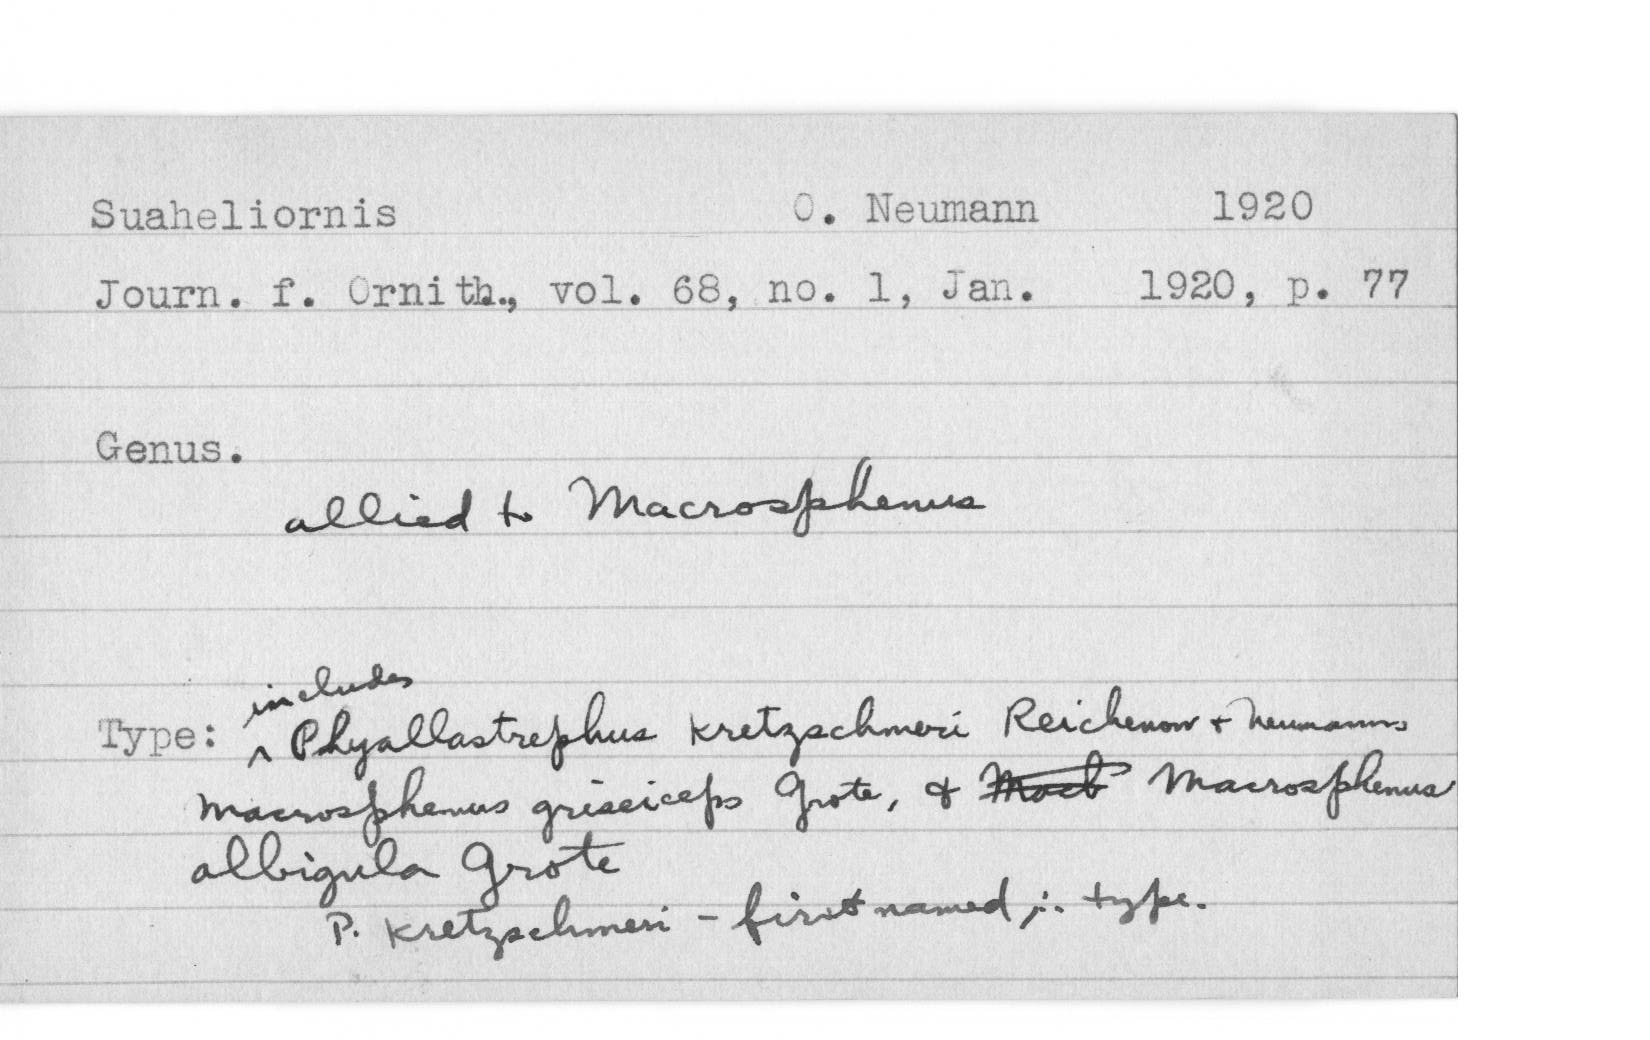 Suaheliornis O. Neumann 1920
Journ. f. Ornith., vol. 68, no. 1, Jan. 1920, p. 77
Genus.
allied to Macrosphenus
includes
Type: ^ Phyallastrephus kretzschmeri Reichenow + Neumann,
Macrosphenus griseiceps Grote, & Macrosphenus
albigula Grote
P. kretzschmeri - first named ∴ type.